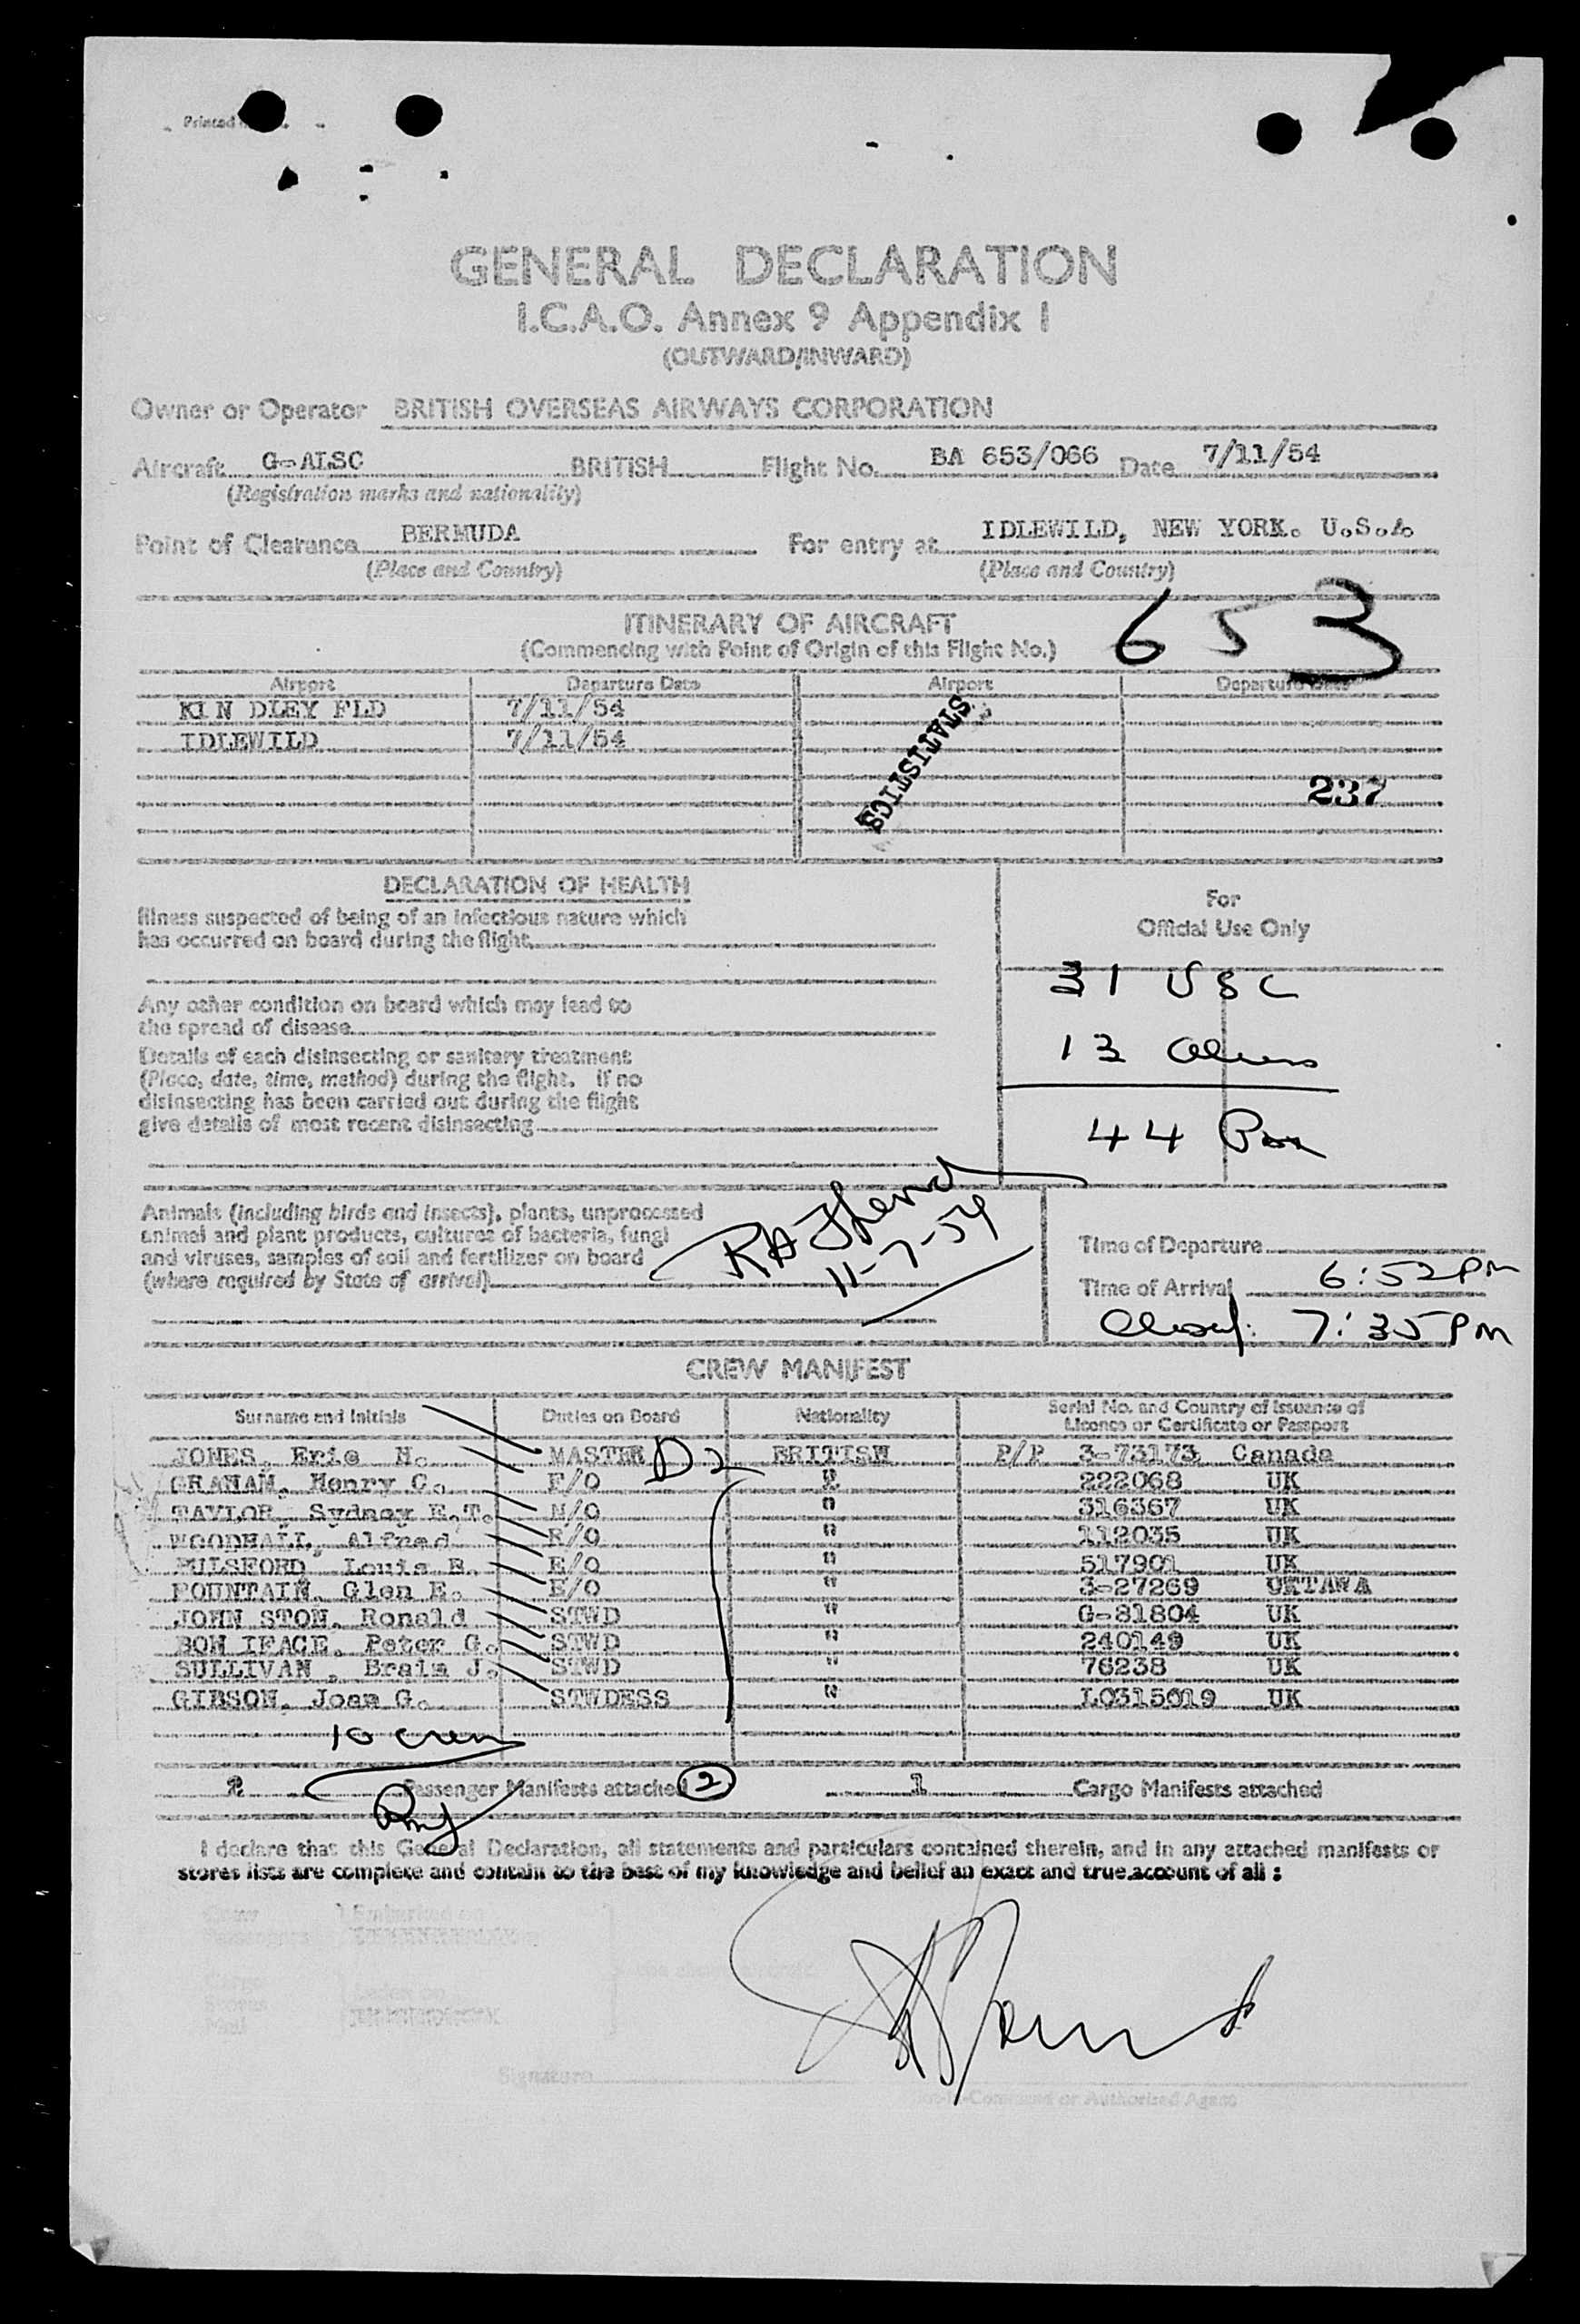 Printed
GENERAL DECLARATION
I.C.A.O. Annex 9 Appendix 1
(OUTWARD/INWARD)
Owner or Operator BRITISH OVERSEAS AIRWAYS CORPORATION
Aircraft G-ALSC BRITISH Flight No. BA 653/066 Date 7/11/54
(Registration marks and nationality)
Point of Clearance BERMUDA For entry at IDLEWILD, NEW YORK. U.S.A.
(Place and Country) (Place and Country)
653
ITINERARY OF AIRCRAFT
(Commencing with Point of Origin of this Flight No.)
Airport Departure Date Airport Departure Date
KIN DLEY FLD 7/11/54
IDLEWILD 7/11/54
STATISTICS
237
DECLARATION OF HEALTH
Illness suspected of being of an infectious nature which
has occurred on board during the flight
Any other condition on board which may lead to
the spread of disease
Details of each disinsecting or sanitary treatment
(Place, date, time, method) during the flight. If no
disinsecting has been carried out during the flight
give details of most recent disinsecting
For
Official Use Only
31 USC
13 Aliens
44 Pax
Animals (including birds and insects), plants, unprocessed
animal and plant products, cultures of bacteria, fungi
and viruses, samples of soil and fertilizer on board
(where required by State of arrival)
11-7-54
Time of Departure
Time of Arrival 6:52 PM
Closed: 7:35 PM
CREW MANIFEST
Surname and Initials Duties on Board Nationality Serial No. and Country of Issuance of
Licence or Certificate or Passport
JONES, Eric N. MASTER D2 BRITISH P/P 3-73173 Canada
GRAHAM, Henry C. F/O " 222068 UK
TAYLOR, Sydney E.T. N/O " 316367 UK
WOODHALL, Alfred R/O " 112035 UK
PULSFORD Louis B. E/O " 517901 UK
FOUNTAIN, Glen E. E/O " 3-27269 OTTAWA
JOHN STON, Ronald STWD " G-81804 UK
BON IFACE, Peter G. STWD " 240149 UK
SULLIVAN, Brain J. STWD " 76238 UK
GIBSON, Joan G. STWDESS " LO315619 UK
10 crew
2 Passenger Manifests attached 2 1 Cargo Manifests attached
I declare that this General Declaration, all statements and particulars contained therein, and in any attached manifests or
stores lists are complete and contain to the best of my knowledge and belief an exact and true account of all :
Crew Embarked on
the above aircraft
Signature
or Authorised Agent